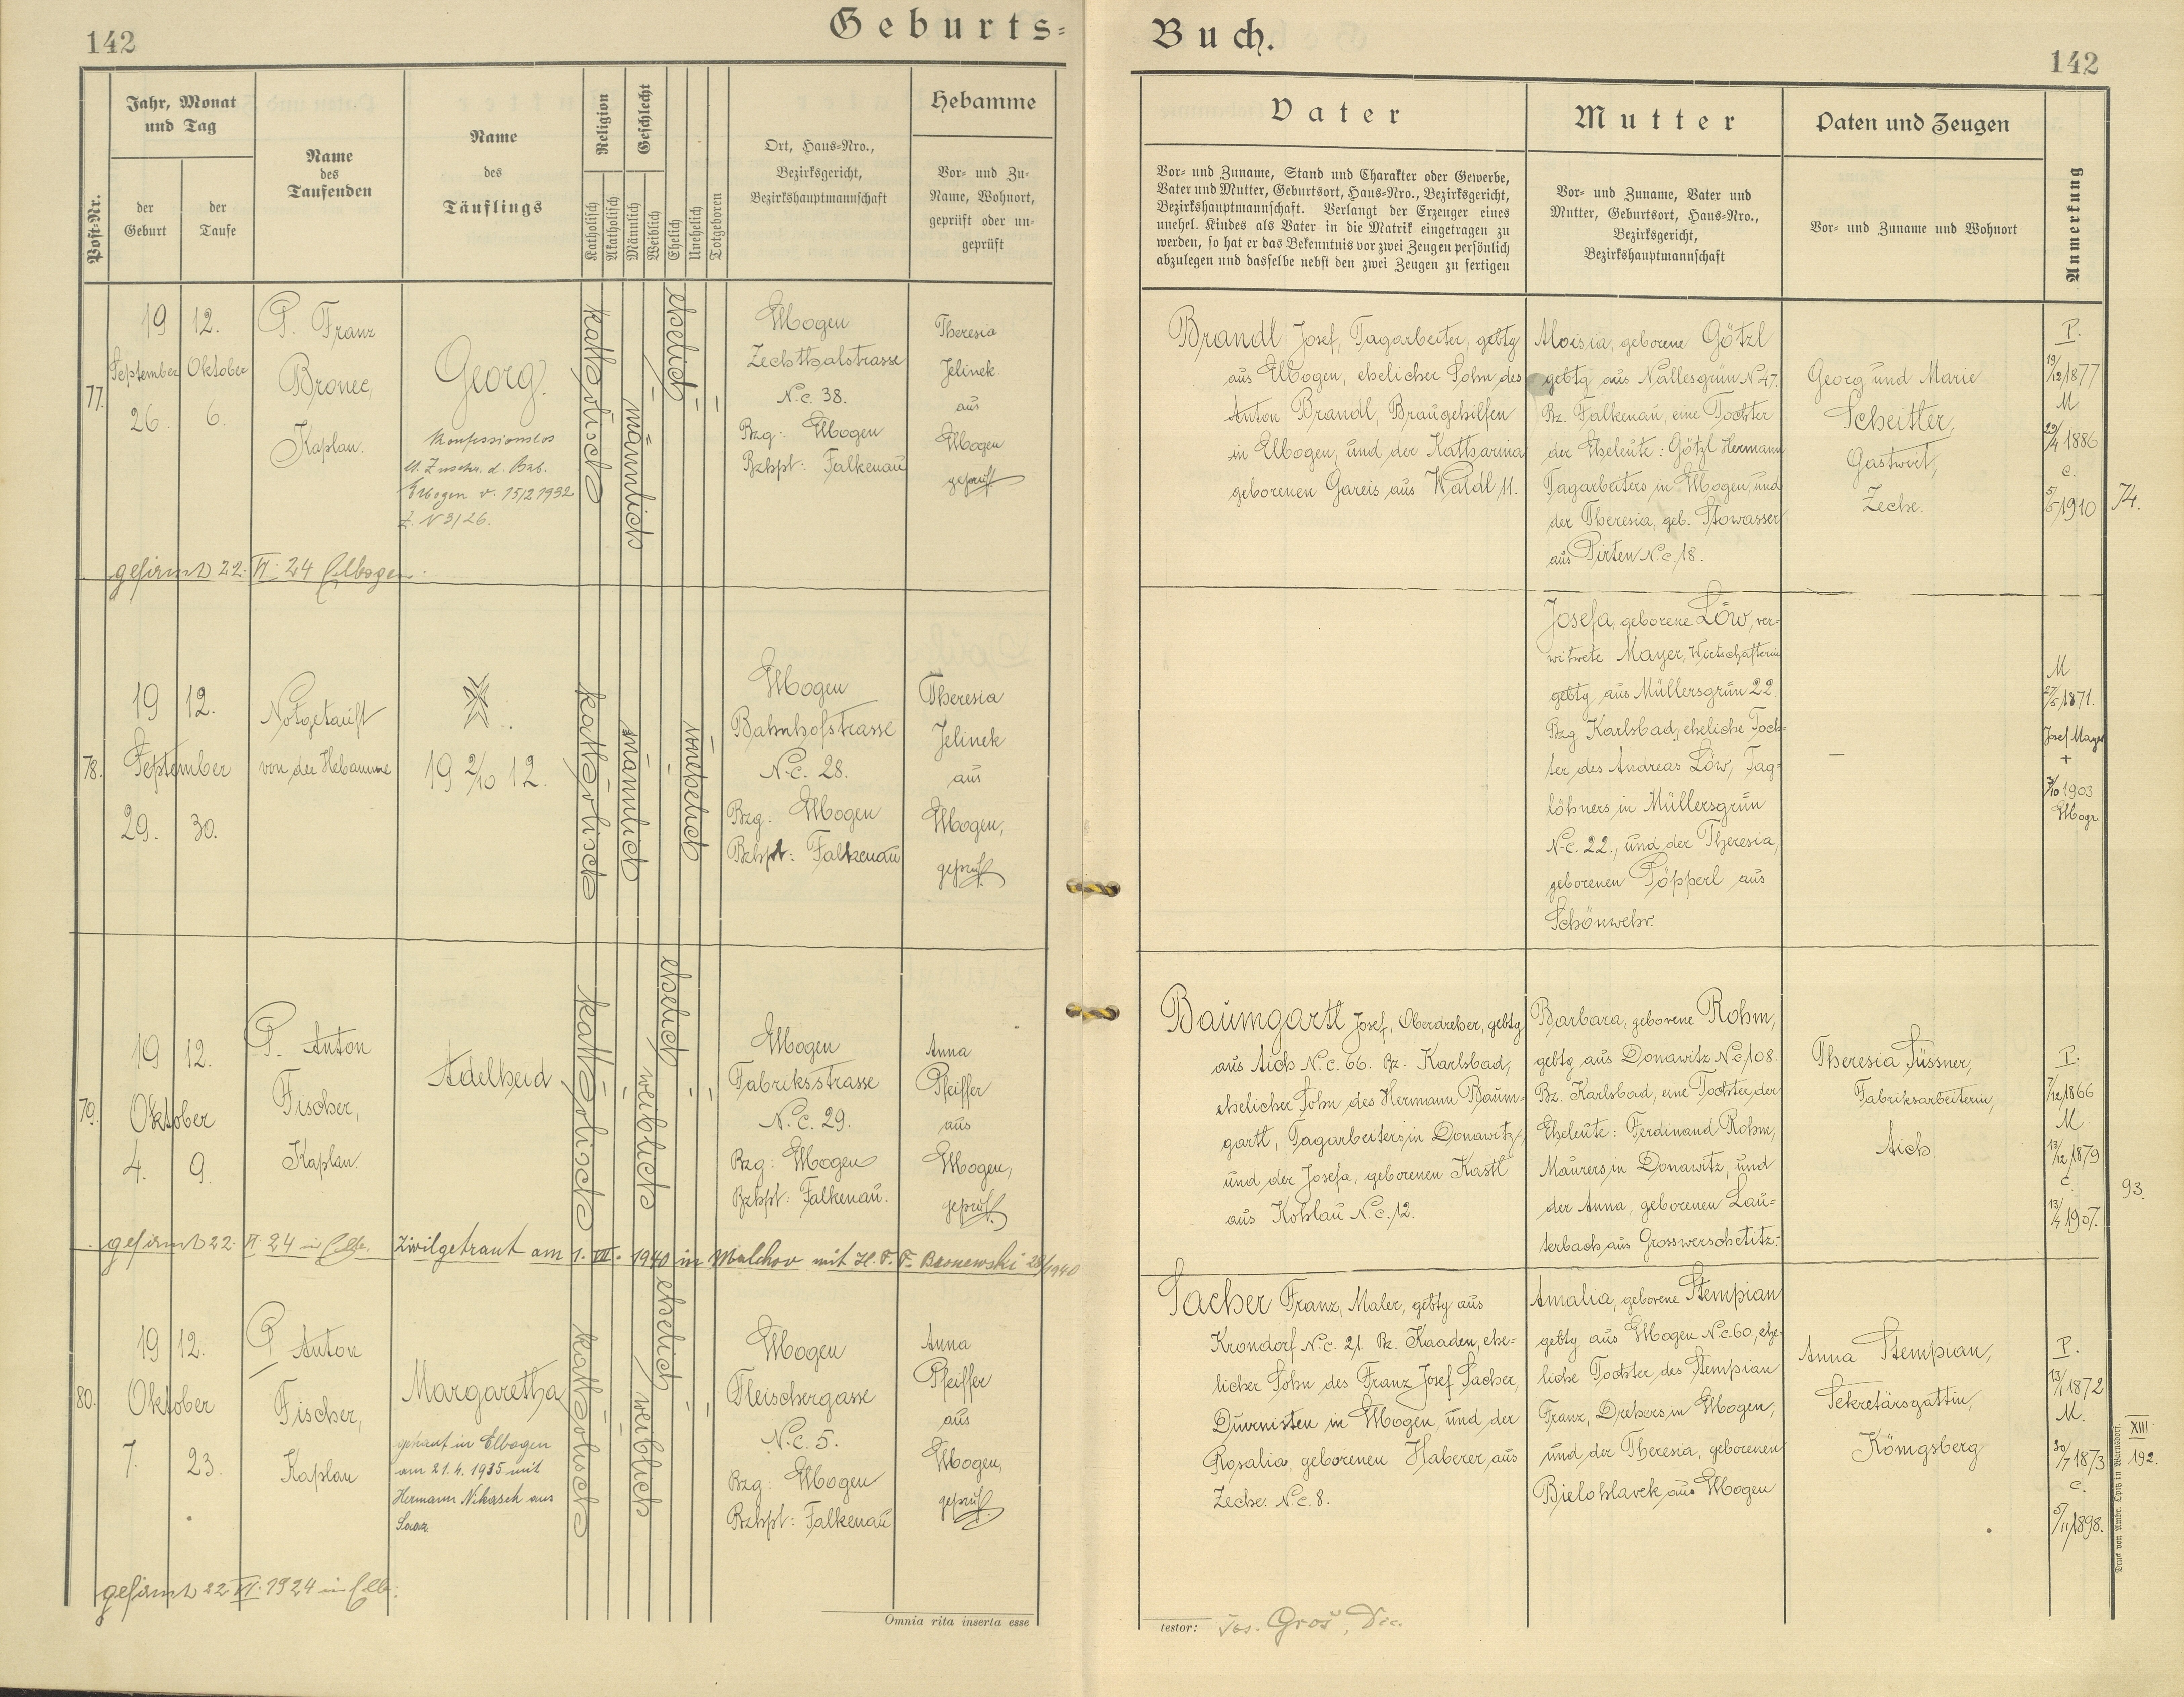 142
Geburts-
Jahr, Monat
und Tag
Post-Nr.
der
Geburt
der
Taufe
Name
des
Taufenden
Name
des
Täuflings
Religion
Katholisch
Akatholisch
Geschlecht
Männlich
Weiblich
Ehelich
Unehelich
Totgeboren
Ort, Haus-Nro.,
Bezirksgericht,
Bezirkshauptmannschaft
Hebamme
Vor- und Zu-
Name, Wohnort,
geprüft oder un-
geprüft
77.
19 12.
September Oktober
26. 6.
P. Franz
Bronec,
Kaplan.
Georg.
Konfessionslos
Elbogen v. 15/2 1932
katholisch
männlich
ehelich
Elbogen
Zechthalstrasse
N.c. 38.
Bzg: Elbogen
Bzhpt: Falkenau
Theresia
Jelinek
aus
Elbogen
geprüft
gefirmt 22. VI. 24 Elbogen.
78.
19 12.
September
29. 30.
Notgetauft
von der Hebamme
19 2/10 12.
katholisch
männlich
unehelich
Elbogen
Bahnhofstrasse
N.c. 28.
Bzg: Elbogen
Bzhpt: Falkenau
Theresia
Jelinek
aus
Elbogen,
geprüft.
79.
19 12.
Oktober
4. 9.
P. Anton
Fischer,
Kaplan.
Adelheid
katholisch
weiblich
ehelich
Elbogen
Fabriksstrasse
N.c. 29.
Bzg: Elbogen
Bzhpt: Falkenau.
Anna
Pfeiffer
aus
Elbogen,
geprüft.
gefirmt 22. VI. 24 in Elb. Zivilgetraut am 1. VII. 1940 in Malchov mit H. F. F. Bronewski 28/1940
80.
19 12.
Oktober
7. 23.
P. Anton
Fischer,
Kaplan
Margaretha
getraut in Elbogen
am 21.4.1935 mit
Hermann Nikasch aus
Saaz
katholisch
weiblich
ehelich
Elbogen
Fleischergasse
N.c. 5.
Bzg: Elbogen
Bzhpt: Falkenau
Anna
Pfeiffer
aus
Elbogen,
geprüft.
gefirmt 22. VI. 1924 in Elb:
Omnia rita inserta esse
Buch.
142
Vater
Vor- und Zuname, Stand und Charakter oder Gewerbe,
Vater und Mutter, Geburtsort, Haus-Nro., Bezirksgericht,
Bezirkshauptmannschaft. Verlangt der Erzeuger eines
unehel. Kindes als Vater in die Matrik eingetragen zu
werden, so hat er das Bekenntnis vor zwei Zeugen persönlich
abzulegen und dasselbe nebst den zwei Zeugen zu fertigen
Mutter
Vor- und Zuname, Vater und
Mutter, Geburtsort, Haus-Nro.,
Bezirksgericht,
Bezirkshauptmannschaft
Paten und Zeugen
Vor- und Zuname und Wohnort
Anmerkung
Brandl Josef, Tagarbeiter, gebtg
aus Elbogen, ehelicher Sohn des
Anton Brandl, Braugehilfen
in Elbogen, und der Katharina
geborenen Gareis aus Waldl 11.
Aloisia, geborene Götzl
gebtg aus Nallesgrün N 47.
Bz. Falkenau, eine Tochter
der Eheleute: Götzl Hermann
Tagarbeiters in Elbogen, und
der Theresia, geb. Stowasser
aus Pirten N.c. 18.
Georg und Marie
Scheitler,
Gastwirt,
Zeche.
P.
19/12 1877
M
29/4 1886
c.
5/5 1910
74.
Josefa, geborene Löw, ver-
witwete Mayer, Wirtschafterin
gebtg aus Müllersgrün 22.
Bzg. Karlsbad, eheliche Toch-
ter des Andreas Löw, Tag-
löhners in Müllersgrün
N.c. 22., und der Theresia,
geborenen Pöpperl aus
Schönwehr.
—
M
27/5 1871.
Josef Mayer
+
3/10 1903
Elbogn
Baumgartl Josef, Oberdreher, gebtg
aus Aich N.c. 66. Bz. Karlsbad,
ehelicher Sohn des Hermann Baum-
gartl, Tagarbeiters in Donawitz,
und der Josefa, geborenen Kastl
aus Kohlau N.c. 12.
Barbara, geborene Rohm,
gebtg aus Donawitz N.c. 108.
Bz. Karlsbad, eine Tochter der
Eheleute: Ferdinand Rohm,
Maurers in Donawitz, und
der Anna, geborenen Lau-
terbach aus Grosswerschetitz.
Theresia Füssner,
Fabriksarbeiterin,
Aich.
P.
7/12 1866
M
13/12 1879
c.
13/4 1907.
93.
Sacher Franz, Maler, gebtg aus
Krondorf N.c. 21. Bz. Kaaden, ehe-
licher Sohn des Franz Josef Sacher,
Diurnisten in Elbogen, und der
Rosalia, geborenen Haberer, aus
Zeche. N.c. 8.
Amalia, geborene Stempian
gebtg aus Elbogen N.c. 60, ehe-
liche Tochter des Stempian
Franz, Drehers in Elbogen,
und der Theresia, geborenen
Bielohlavek aus Elbogen
Anna Stempian,
Sekretärsgattin,
Königsberg
P.
13/1 1872
M.
30/7 1873
c.
5/11 1898.
XIII
192.
Druck von Ambr. Opitz in Warnsdorf.
testor: Jos. Groš, Dec.